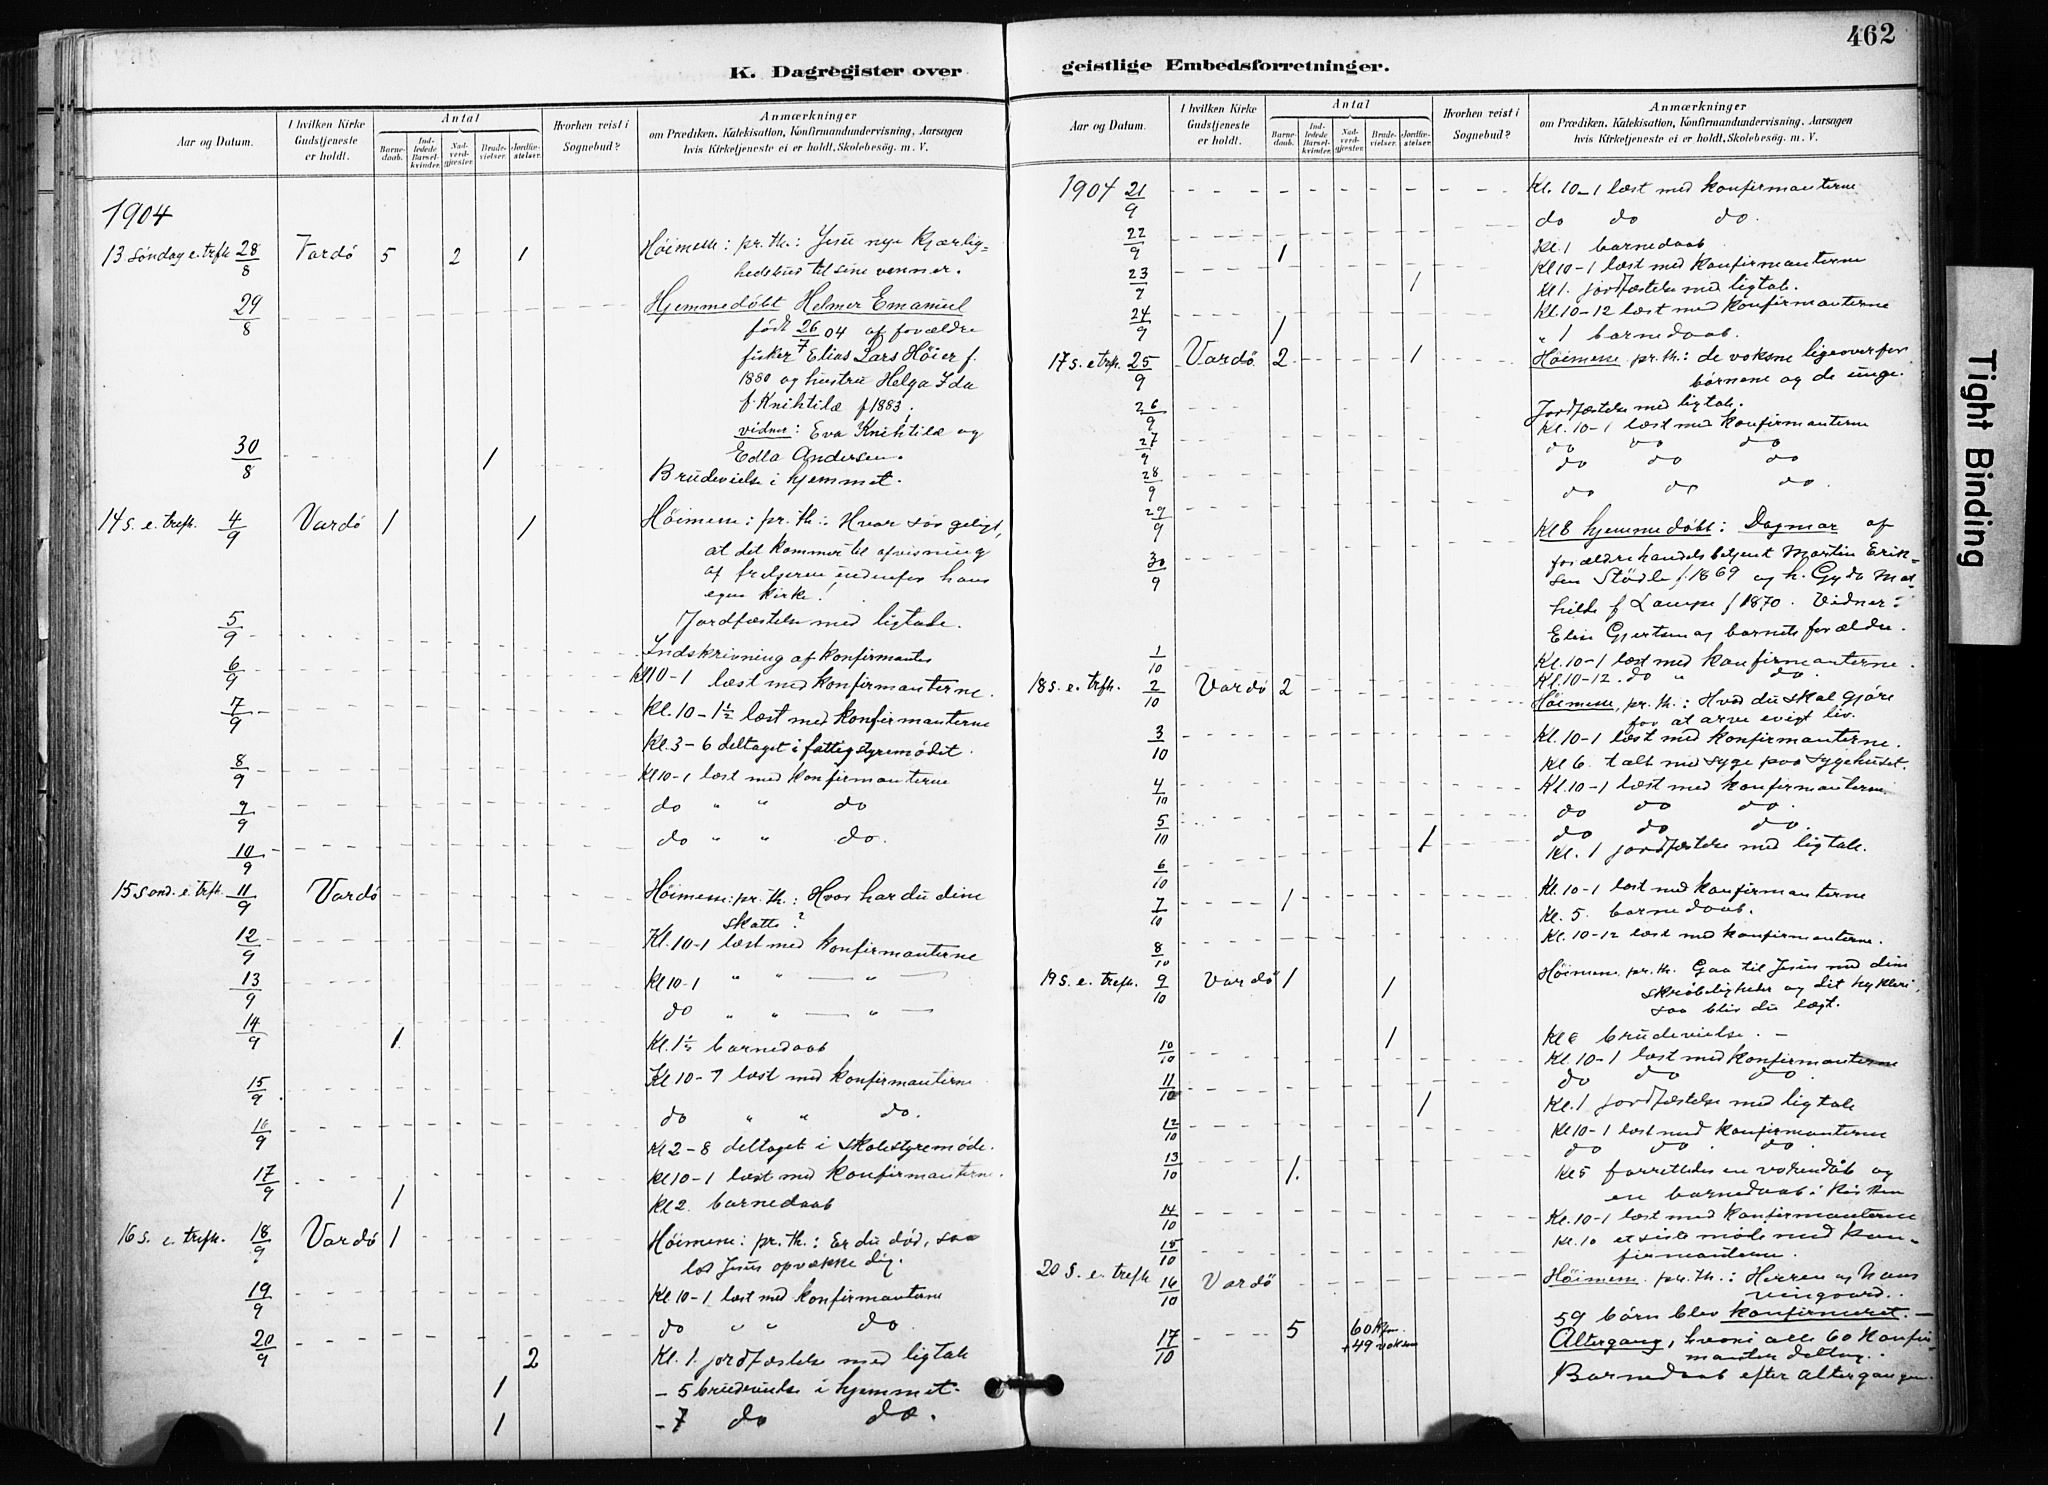 K. Dagregister over
Aar og Datum.
I hvilken Kirke Gudstjeneste er holdt.
Antal
Barnedaab.
Indledede Barselkvinder.
Nadverdgjester.
Brudevielser.
Jordfæstelser.
Hvorhen reist i Sognebud?
Anmærkninger
om Prædiken, Katekisation, Konfirmandundervisning, Aarsagen
hvis Kirketjeneste ei er holdt, Skolebesög. m. V.
1904
13 søndag e. trfh 28/8 Vardø 5 2 1 Høimesse: pr. th.: Jesu nye kjærlig-
hedsbud til sine venner.
29/8 Hjemmedøbt Helmer Emanuel
født 26/7 04 af forældre
fisker Elias Lars Høier f.
1880 og hustru Helga Ida
f. Knihtilæ f 1883.
vidner: Eva Knihtilæ og
Edla Andersen.
30/8 1 Brudevielse i hjemmet.
14 s. e. trefh. 4/9 Vardø 1 1 Høimesse: pr. th.: Hvor sørgeligt,
at det kommer til afvisning
af frelseren indenfor hans
egen kirke!
5/9 Jordfæstelse med ligtale.
6/9 Indskrivning af konfirmanter
kl 10-1 læst med konfirmanterne.
7/9 Kl. 10-1½ læst med konfirmanterne
Kl. 3-6 deltaget i fattigstyremødet.
8/9 Kl 10-1 læst med konfirmanterne
9/9 do " " do
10/9 do " " do.
15 sønd. e. trfh. 11/9 Vardø Høimesse: pr. th.: Hvor har du dine
skatte?
12/9 Kl. 10-1 læst med konfirmanterne
13/9 Kl 10-1 " " — " —
do " " — " —
14/9 1. Kl. 1½ barnedaab
15/9 Kl 10-1 læst med konfirmanterne
16/9 do " " do.
Kl 2-8 deltaget i skolestyremøde.
17/9 Kl 10-1 læst med konfirmanterne.
1 Kl 2. barnedaab
16 s. e. trefh. 18/9 Vardø 1 Høimesse: pr. th.: Er du død, saa
lad Jesus opvække dig.
19/9 Kl 10-1 læst med konfirmanterne
20/9 do " " do
2 Kl. 1. jordfæstelse med ligtale
1 - 5 brudevielse i hjemmet.
1 - 7 do do.
462
geistlige Embedsforretninger.
Aar og Datum.
I hvilken Kirke Gudstjeneste er holdt.
Antal
Barnedaab.
Indledede Barselkvinder.
Nadverdgjester.
Brudevielser.
Jordfæstelser.
Hvorhen reist i Sognebud?
Anmærkninger
om Prædiken, Katekisation, Konfirmandundervisning, Aarsagen
hvis Kirketjeneste ei er holdt, Skolebesög. m. V.
1904 21/9 Kl. 10-1 læst med konfirmanterne
22/9 do do do.
1 Kl. 1 barnedaab
23/9 Kl 10-1 læst med konfirmanterne
1 Kl 1. jordfæstelse med ligtale.
24/9 Kl. 10-12 læst med konfirmanterne
1 " 1 barnedaab.
17 s. e trfh. 25/9 Vardø. 2 1 Høimesse pr. th.: de voksne ligeoverfor
børnene og de unge.
Jordfæstelse med ligtale.
26/9 Kl. 10-1 læst med konfirmanterne
27/9 do do do
28/9 do do do
29/9 do do do.
30/9 Kl 8 hjemmedøbt: Dagmar af
forældre handelsbetjent Martin Erik-
sen Stödle f. 1869 og h. Gyda Mat-
hilde f Lampe f 1870. Vidner:
Elise Gjertsen og barnets forældre.
Kl. 10-1 læst med konfirmanterne.
1/10 Kl. 10-12. do " do.
18 s. e. trfh. 2/10 Vardø 2 Høimesse, pr. th.: Hvad du skal gjøre
for at arve evigt liv.
3/10 Kl. 10-1 læst med konfirmanterne.
Kl 6. talt med syge paa sygehuset.
4/10 Kl. 10-1 læst med konfirmanterne.
5/10 do do do.
6/10 do do do.
1 Kl. 1 jordfæstelse med ligtale.
7/10 Kl. 10-1 læst med konfirmanterne
1 Kl. 5. barnedaab.
8/10 Kl. 10-12 læst med konfirmanterne.
19 s. e. trefh. 9/10 Vardø 1 1 Høimesse pr. th. Gaa til Jesus med dine
skrøbeligheder og dit hykleri,
saa bliv du lægt.
1 Kl 6 brudevielse. -
10/10 Kl. 10-1 læst med konfirmanterne
11/10 do do do.
1 Kl. 1 jordfæstelse med ligtale
12/10 Kl 10-1 læst med konfirmanterne
13/10 do do. do.
1. Kl 5 forrettedes en voksendåb og
en barnedaab i kirken
14/10 Kl. 10-1 læst med konfirmanterne
15/10 Kl. 10 et siste møde med kon-
firmanterne.
20 s. e. trefh 16/10 Vardø Høimesse pr. th.: Herren og hans
vingaard.
59 børn blev konfirmeret. -
17/10 5 60 Kfm. + 49 voksne Altergang, hvori alle 60 konfir-
manter deltog.
Barnedaab efter altergangen.
Tight Binding